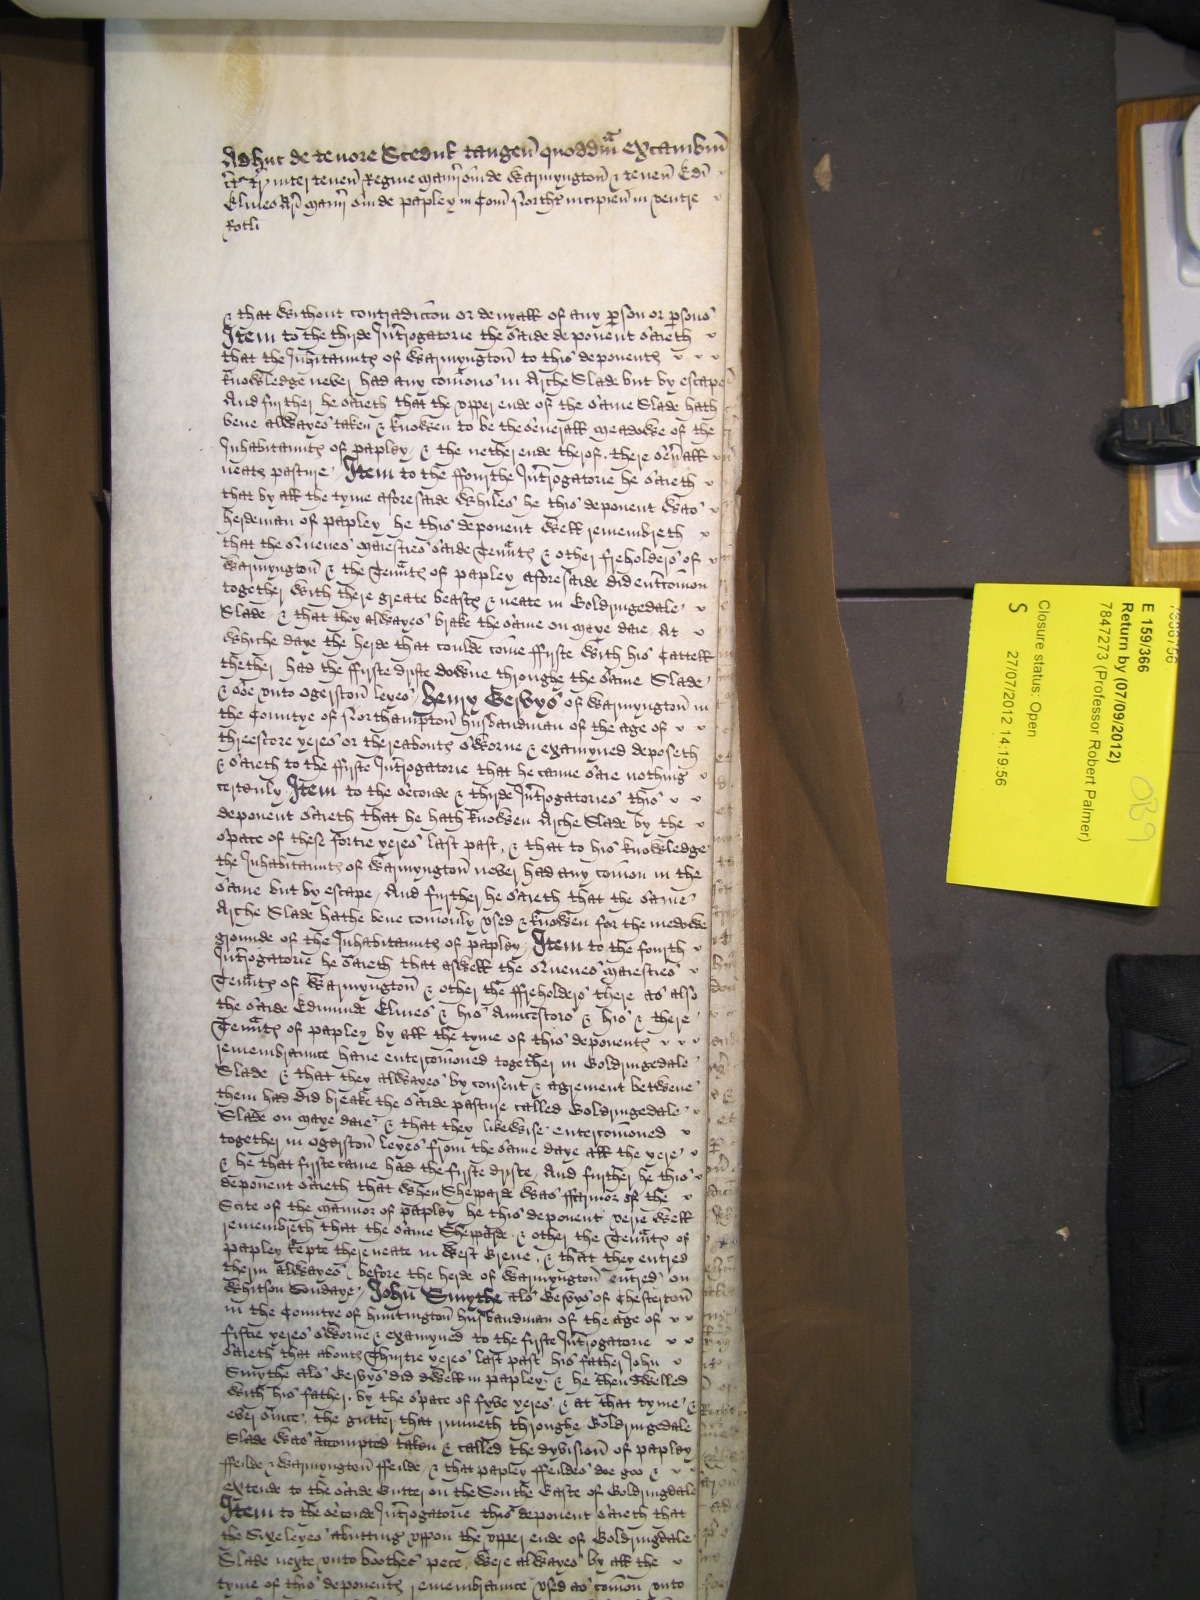 Adhuc de tenore Scedule tangen quoddam excambium
inter tenen Regine Manerii sui de Warmyngton & tenen Edi
Elmes Ar Manerii sui de Papley in Com Northt incipien in ventre
Rotli
& that without contradiccon or denyall of any pson or psons
Item to the thyrde Introgatorie the saide deponent saieth
that the Inhitaunts of Warmyngton to this deponents
knowledge never had any comons in Arche Slade but by escape
And further he saieth that the vpper ende of the same Slade hath
bene allwayes taken & knowen to be the severall meadowe of the
Inhabitaunts of Papley & the nether ende therof there sevrall
neats pasture Item to the ffourthe Introgatorie he saieth
that by all the tyme aforesaide whiles he this deponent was
heideman of Papley he this deponent well remembreth
that the Quenes Maiesties saide Tennts & other freholders of
Warmyngton & the Tennts of Papley aforesaide did entrcomon
together with there greate beasts & neate in Goldringedale
Slade & that they allwayes brake the same on Maye daie At
whiche daye the herde that coulde come ffirste with his Cattell
thether had the ffirste drifte downe throughe the same Slade
& soe vnto Ogerston leyes Henry Gervys of Warmyngton in
the Countye of Northampton husbandman of the age of
threescore yeres or thereabouts sworne & examyned deposeth
& saieth to the ffirste Introgatorie that he canne saie nothing
certenly Item to the seconde & thyrde Introgatories this
deponent saieth that he hath knowen Arche Slade by the
space of these fortie yeres last past, & that to his knowledge
the Inhabitaunts of Warmyngton never had any comon in the
same but by escape, And further he saieth that the same
Arche Slade hathe bene comonly vsed & knowen for the medowe
grounde of the Inhabitaunts of Papley Item to the fourth
Introgatorie he saieth that aswell the Quenes Maiesties
Tennts of Warmyngton & other the ffreholders there as also
the saide Edmunde Elmes & his Auncestors & his & there
Tennts of Papley by all the tyme of this deponents
remembraunce haue entercomoned together in Goldringedale
Slade & that they allwayes by consent & agrement betwene
them had did breake the saide pasture called Goldringedale
Slade on Maye daie & that they likewise entercomoned
together in Ogerston leyes from the same daye all the yere
& he that firste came had the firste dryfte And further he this
deponent saieth that when Shepparde was ffarmor of the
Scite of the mannor of Papley he this deponent verie well
remembreth that the same Sheparde & other the Tennts of
Papley kepte there neate in West Grene, & that they entred
therin allwayes before the herde of Warmyngton entred on
Whitson Sondaye John Smythe als Gervys of Chesterton
in the Countye of Huntington husbandman of the age of
fiftie yeres sworne & examyned to the firste Introgatorie
saieth that abouts Thirtie yeres last past his father John
Smythe als Gervys did dwell in Papley & he then dwelled
with his father by the space of fyve yeres & at that tyme &
ever since the gutter that runneth throughe Goldringedale
Slade was accompted taken & called the dyvision of Papley
ffeilde & Warmyngton ffeilde, & that Papley ffeildes doe goo &
extende to the saide Gutter on the Southe Easte of Goldringdale
Item to the seconde Introgatorie this deponent saieth that
the Sixe leyes abutting vppon the vpper ende of Goldringdale
Slade nexte vnto boothes pece, were allwayes by all the
tyme of this deponents remembraunce vsed as comon vnto
7838756
E 159/366
Return by (07/09/2012)
7847273 (Professor Robert Palmer)
Closure status: Open
S 27/07/2012 14:19:56